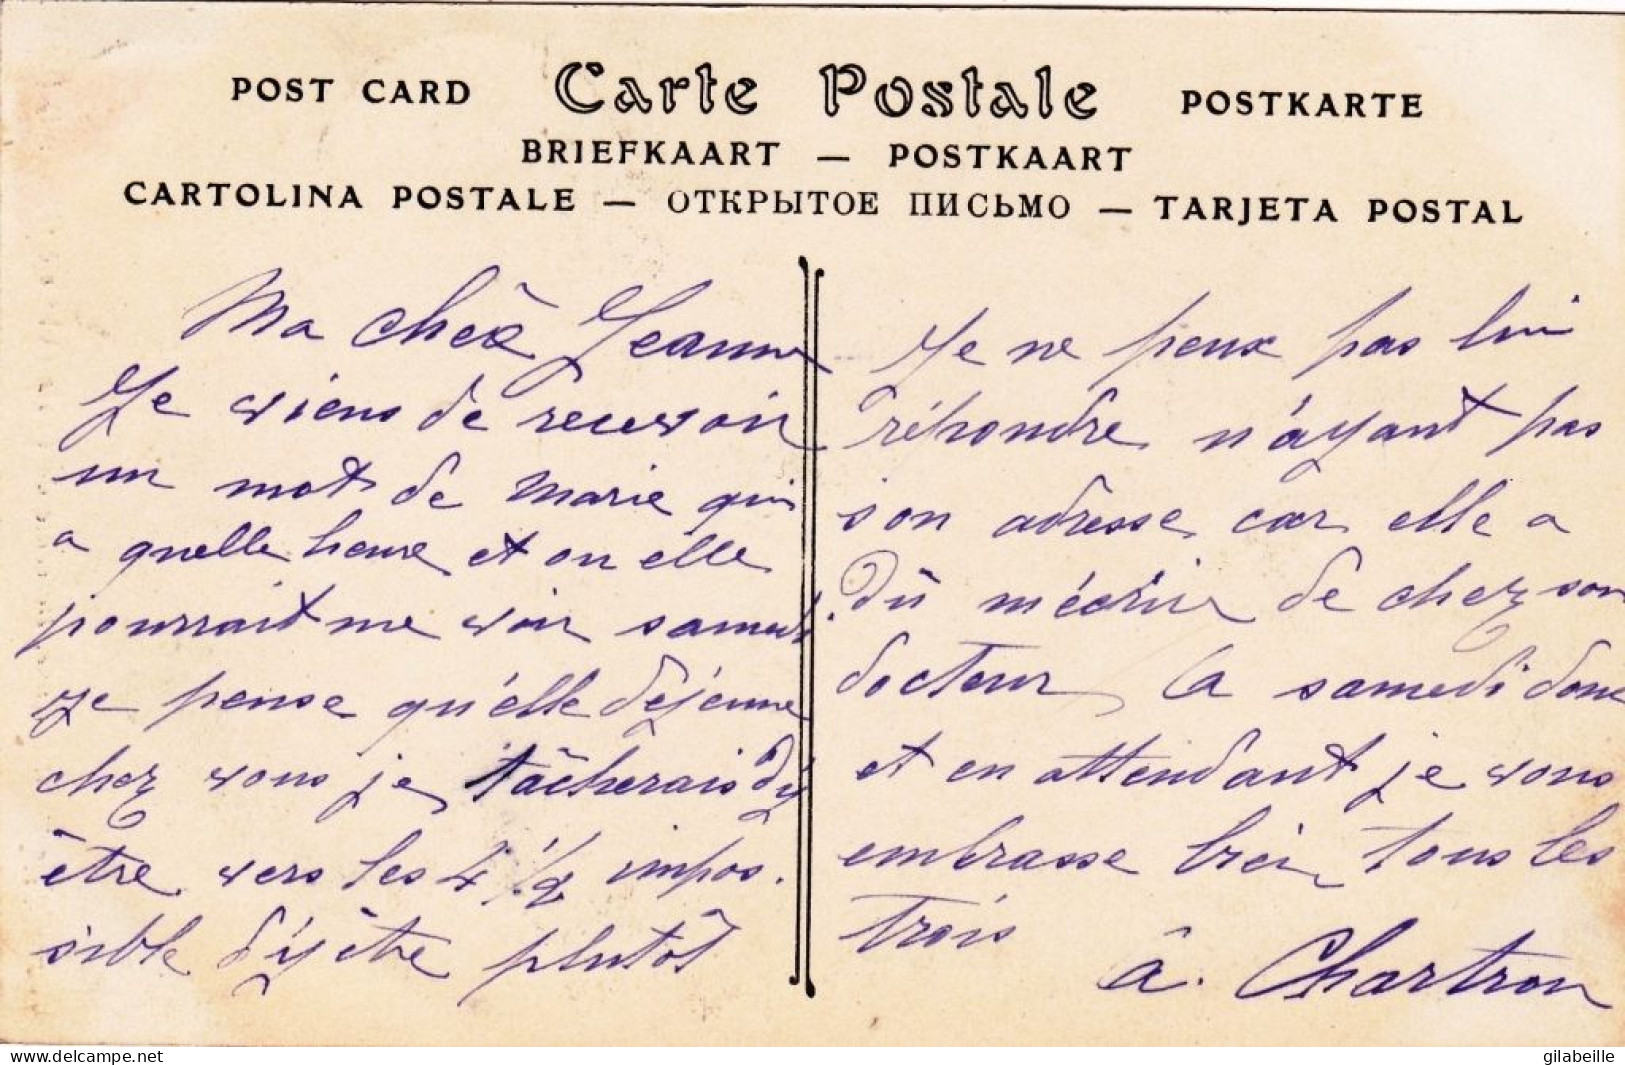 POST CARD Carte Postale POSTKARTE
BRIEFKAART — POSTKAART
CARTOLINA POSTALE — ОТКРЫТОЕ ПИСЬМО — TARJETA POSTAL
Ma chère Jeanne
Je viens de recevoir
un mot de Marie qui
a quelle heure et ou elle
pourrait me voir samedi.
je pense qu'elle déjeune
chez vous je tâcherais d'y
être vers les 4 1/2 impos.
sible d'y être plutôt
Je ne peux pas lui
répondre n'ayant pas
son adresse car elle a
dû m'écrire de chez son
docteur, a samedi donc
et en attendant je vous
embrasse bien tous les
trois
a. Chartron
www.delcampe.net
gilabeille